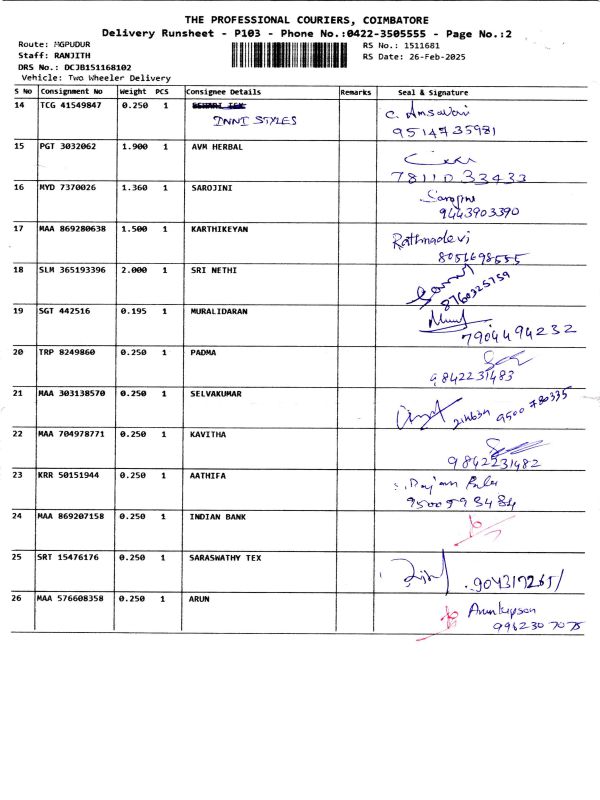 THE PROFESSIONAL COURIERS, COIMBATORE
Delivery Runsheet - P103 - Phone No.:0422-3505555 - Page No.:2
Route: MGPUDUR
RS No.: 1511681
Staff: RANJITH
RS Date: 26-Feb-2025
DRS No.: DCJB151168102
Vehicle: Two Wheeler Delivery
S No Consignment No Weight PCS Consignee Details Remarks Seal & Signature
14 TCG 41549847 0.250 1
INNI STYLES
9514735981
15 PGT 3032062 1.900 1 AVM HERBAL
7811033433
16 MYD 7370026 1.360 1 SAROJINI
9443903390
17 MAA 869280638 1.500 1 KARTHIKEYAN Rathnadevi
8056698555
18 SLM 365193396 2.000 1 SRI NETHI
8760325759
19 SGT 442516 0.195 1 MURALIDARAN
7904494232
20 TRP 8249860 0.250 1 PADMA
9842231483
21 MAA 303138570 0.250 1 SELVAKUMAR
9500 780335
22 MAA 704978771 0.250 1 KAVITHA
9842231482
23 KRR 50151944 0.250 1 AATHIFA
24 MAA 869207158 0.250 1 INDIAN BANK
25 SRT 15476176 0.250 1 SARASWATHY TEX
26 MAA 576608358 0.250 1 ARUN
996230 7075